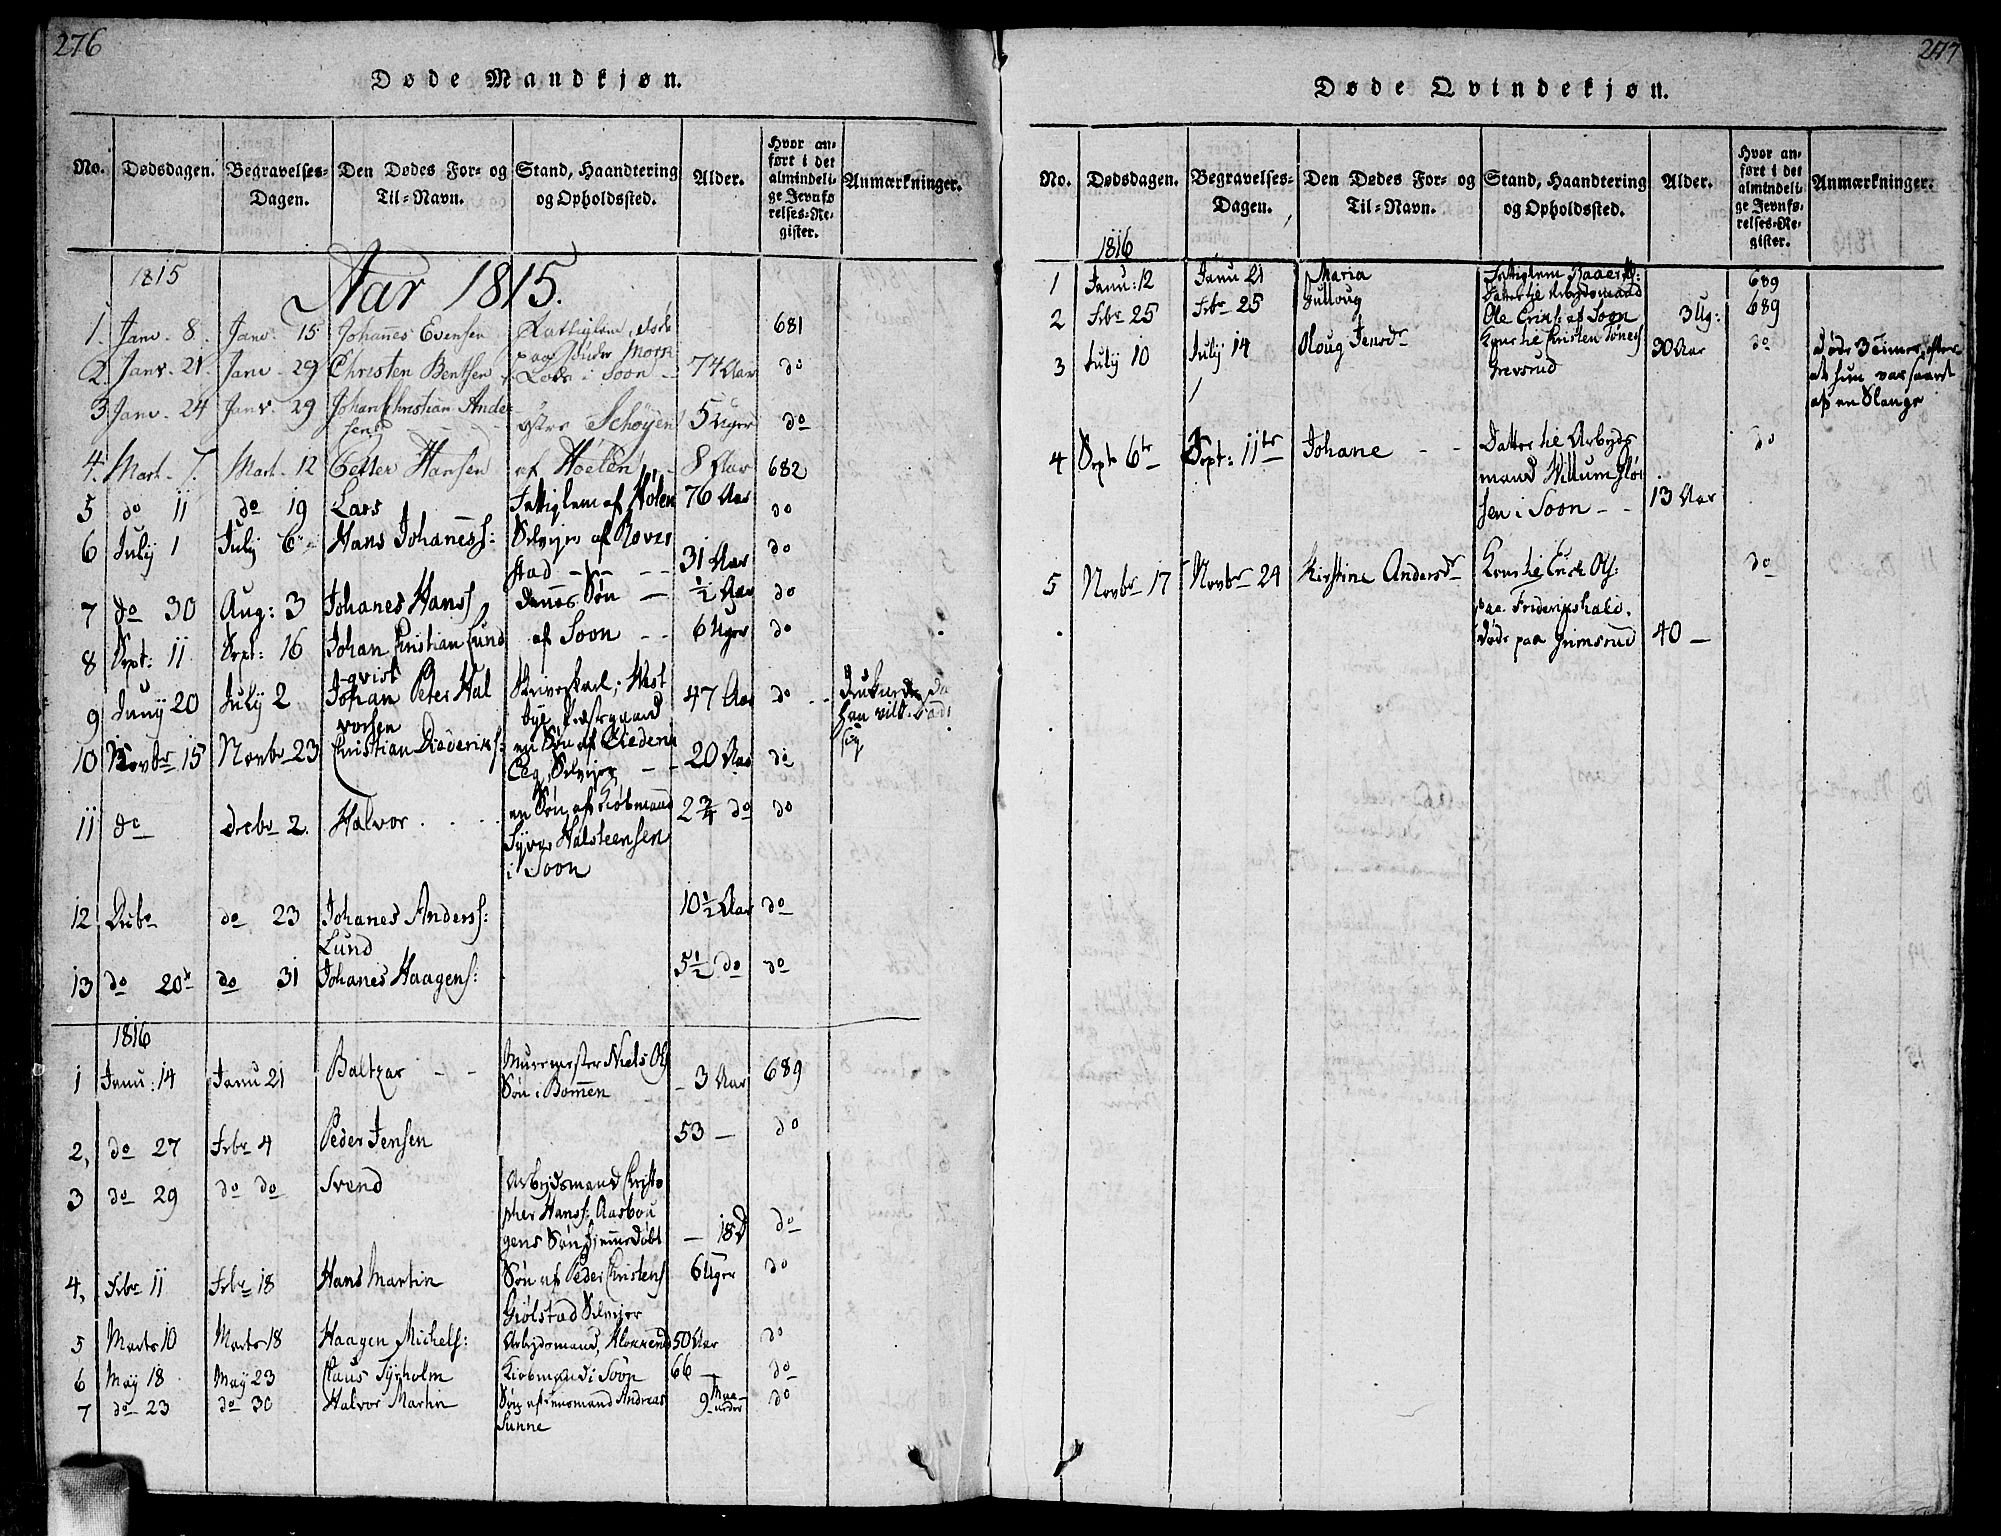 276
Døde Mandkjøn.
No. Dødsdagen. Begravelses-Dagen. Den Dødes For- og Til-Navn. Stand, Haandtering og Opholdssted. Alder. Hvor anført i det almindelige Jevnførelses-Register. Anmærkninger.
1815
Aar 1815.
1. Janv. 8. Janv. 15 Johannes Evensen 681
2. Janv. 21. Janv. 29 Christen Bentsen i Soon 74 Aar do
3. Janv. 24 Janv. 29 Johan Christian Andersen Schøyen 5 Uger do
4. Mart. 7. Mart. 12 Hansen af Hoelen 8 Aar 682
5 do 11 do 19 Lars Fattiglem af Hølen 76 Aar do
6 July 1 July 6 Hans Johaness: Selvejer af 31 Aar do
7 do 30 Aug: 3 Johanes Hanss dennes Søn ½ Aar do
8 Sept: 11 Sept: 16 Johan Christian Lundqvist af Soon 6 Uger do
9 Juny 20 July 2 Johan Peter Halvorsen Skriverkarl i Westbye Præstegaard 47 Aar do druknede da han vilde bade sig
10 Novbr 15 Novbr 23 Christian Dideriks: en Søn af Selvejer 20 Aar do
11 do Decbr 2. Halvor en Søn af Kiøbmand Syver Halsteensen i Soon 2 ¾ do do
12 Decbr do 23 Johanes Anderss: Lund 10½ Aar do
13 do 20 do 31 Johanes Haagens: 5½ do do
1816
1 Janu: 14 Janu 21 Baltzar Muurmester Niels Ols Søn i Bommen 3 Aar 689
2, do 27 Febr 4 Peder Jensen 53 do
3 do 29 do do Svend Arbejdsmand Christopher Hanss: Søn hjemmedøbt 18 D do
4, Febr 11 Febr 18 Hans Martin Søn af Peder Christens Giølstad Selvejer 6 Uger do
5 Marts 10 Marts 18 Haagen Michels: Arbejdsmand, 50 Aar do
6 May 18 May 23 Claus Tyrholm Kiøbmand i Soon 66 do
7 do 23 do 30 Halvor Martin Søn af Lensmand Andreas Sunne 9 Maaneder do
277
Døde Qvindekjøn.
No. Dødsdagen. Begravelses-Dagen. Den Dødes For- og Til-Navn. Stand, Haandtering og Opholdssted. Alder. Hvor anført i det almindelige Jevnførelses-Register. Anmærkninger.
1816
1 Janu: 12 Janu 21 Maria Fattiglem 689
2 Febr 25 Febr 25 Gulloug Datter til Arbejdsmand Ole Erichs: af Soon 3 Ug: 689
3 July 10 July 14 Oloug Jensdr Kone til Christen Tøness Grevsrud 30 Aar do døde 3 Timer efter at hun var saaret af en Slange
4 Sept 6te Sept: 11te Johane Datter til Arbejdsmand Willum i Soon 13 Aar do
5 Novbr 17 Novbr 24 Kirstine Andersdr Kone til Erich Ols: paa Friderikshald. døde paa Grimsrud 40 do